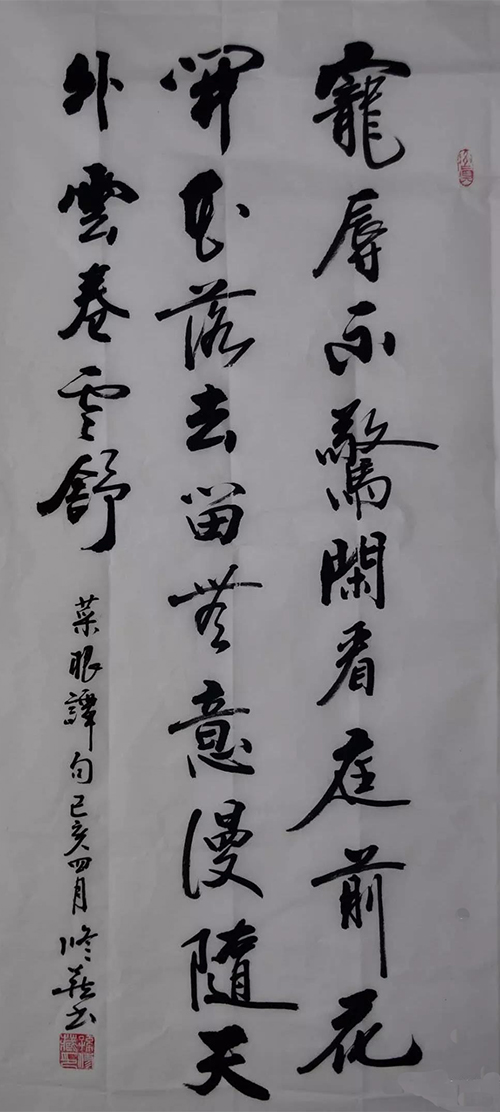 寵辱不驚閑看庭前花
開花落去留無意漫隨天
外雲卷雲舒
菜根譚句己亥四月修書